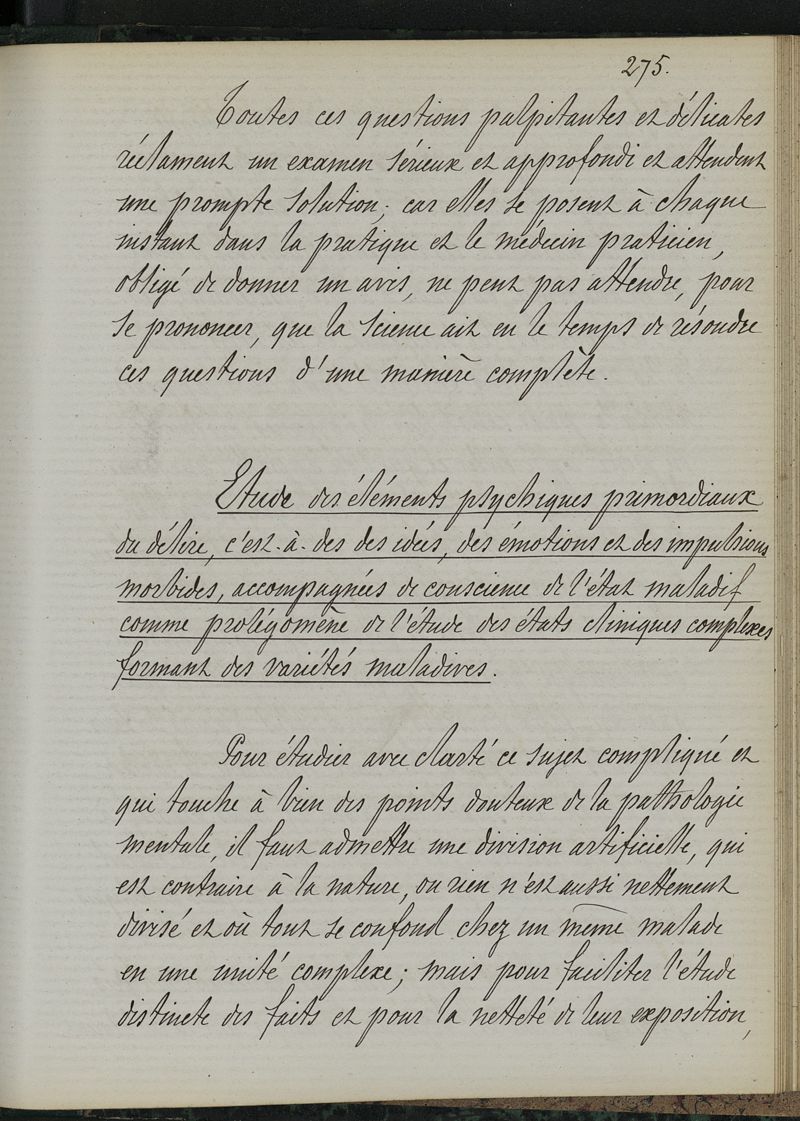 275.
Toutes ces questions palpitantes et délicates
réclament un examen sérieux et approfondi et attendent
une prompte solution; car elles se posent à chaque
instant dans la pratique et le médecin praticien,
obligé de donner un avis, ne peut pas attendre, pour
se prononcer, que la science ait eu le temps de résoudre
ces questions d'une manière complète.
Etude des éléments psychiques primordiaux
du délire, c'est-à-des des idées, des émotions et des impulsions
morbides, accompagnées de conscience de l'état maladif
comme prolégomène de l'étude des états cliniques complexes
formant des variétés maladives.
Pour étudier avec clarté ce sujet compliqué et
qui touche à bien des points douteux de la pathologie
mentale, il faut admettre une division artificielle, qui
est contraire à la nature, ou rien n'est aussi nettement
divisé et où tout se confond chez un même malade
en une unité complexe; mais pour faciliter l'étude
distincte des faits et pour la netteté de leur exposition,